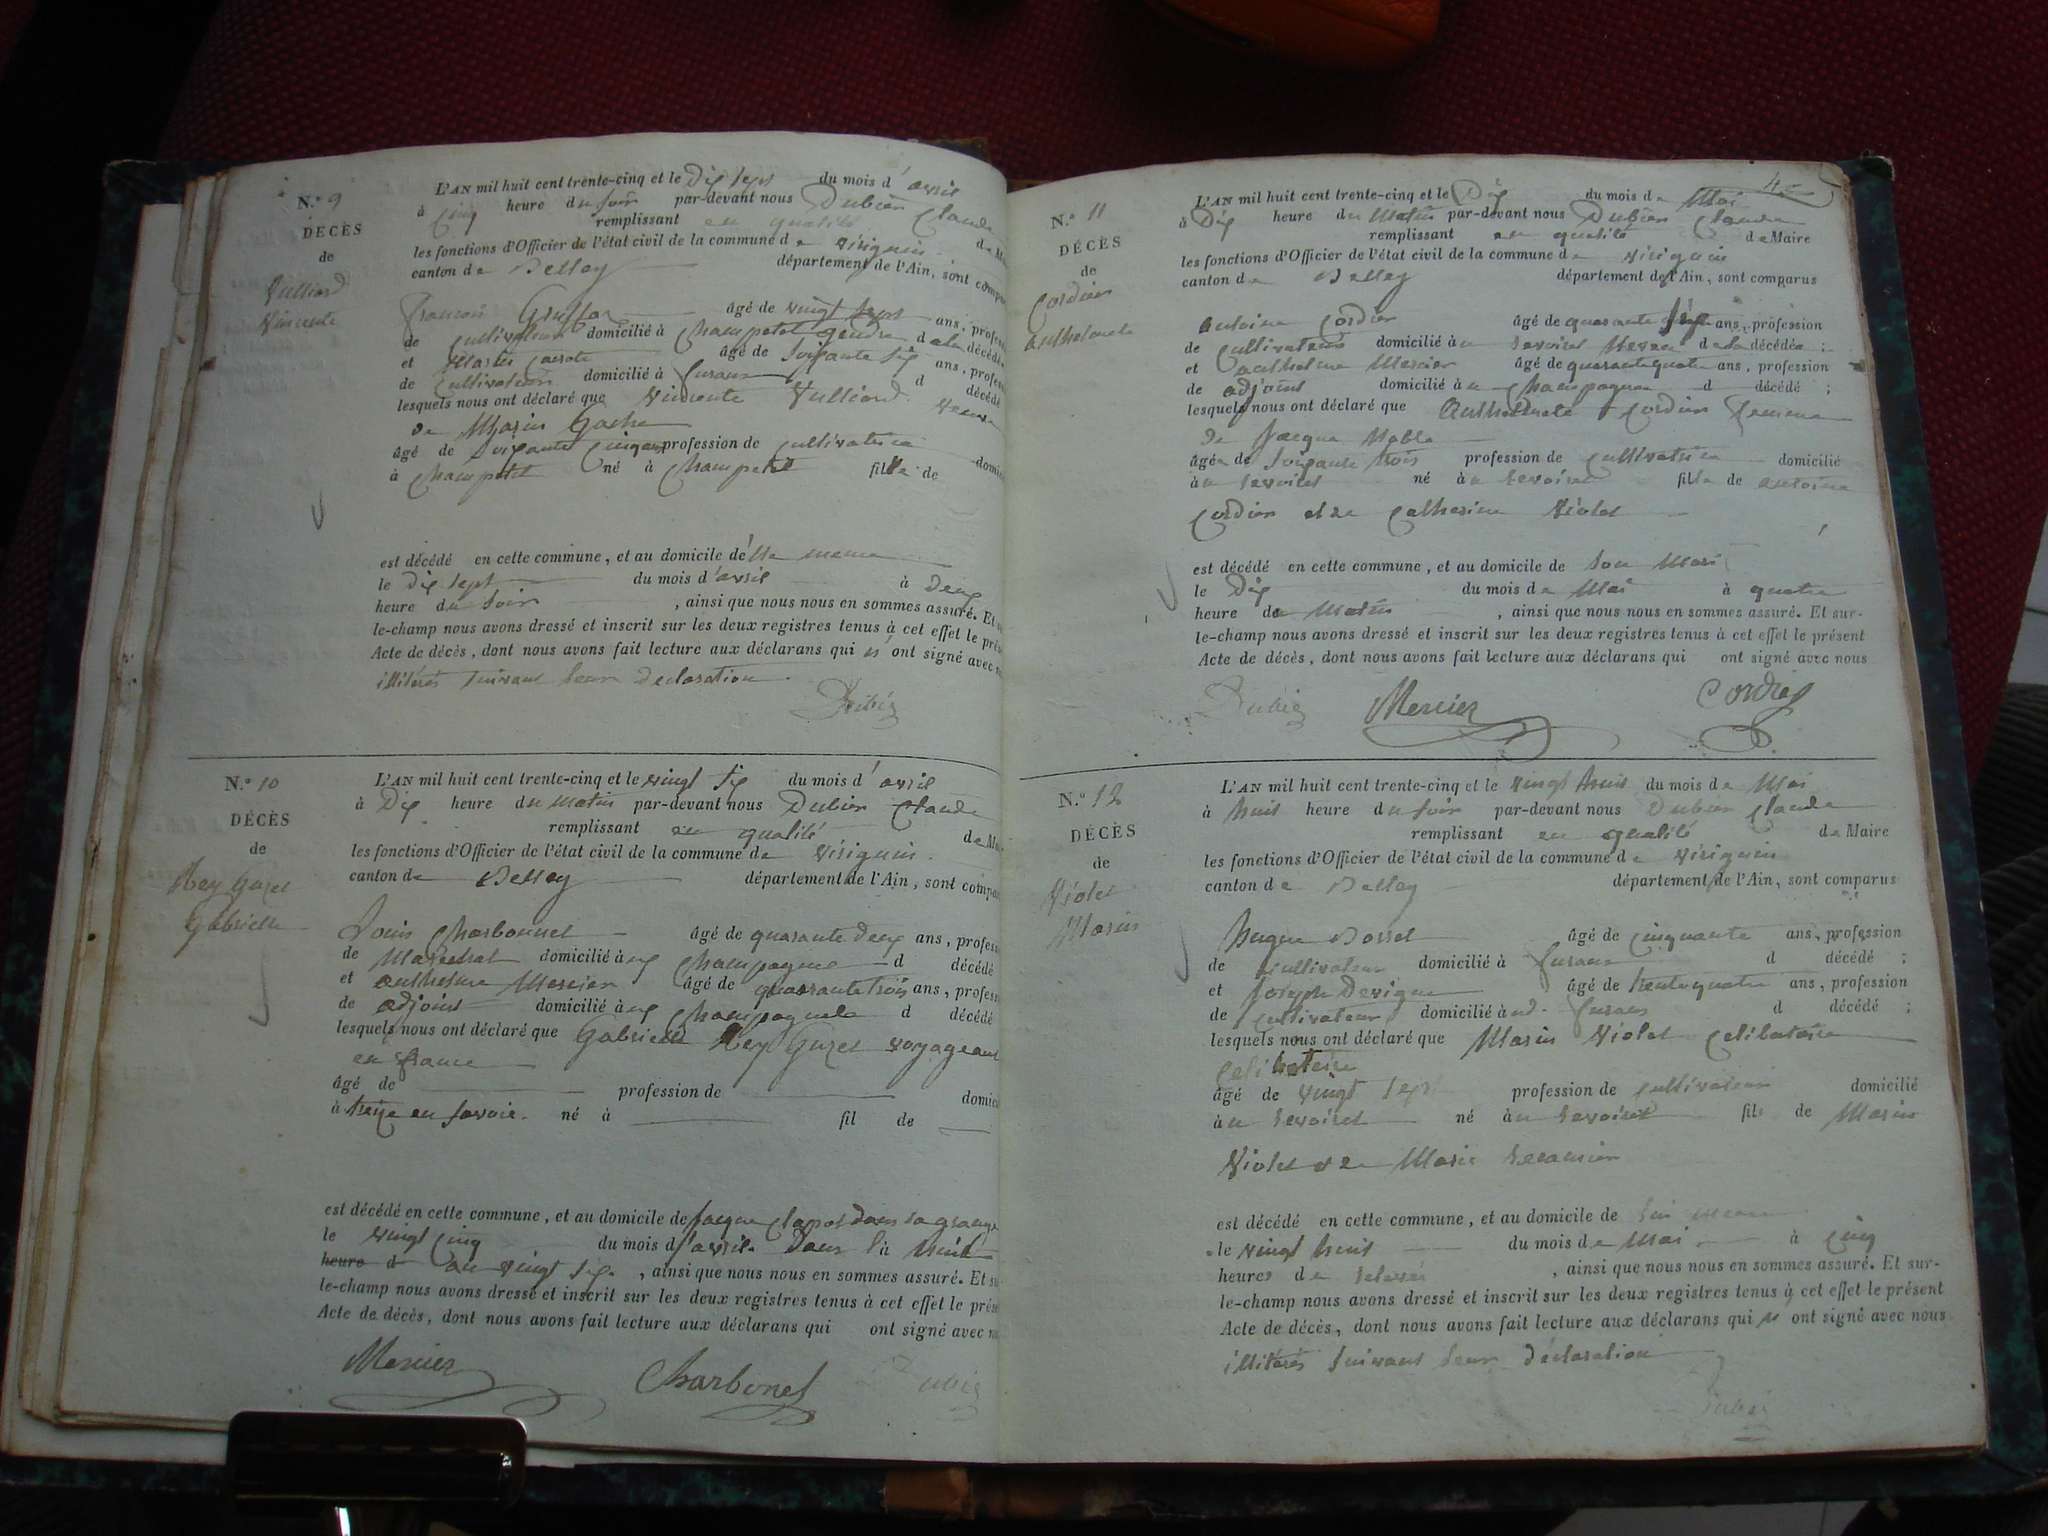 N.° 9
DÉCÈS
de
Vulliord
Vincente
L'AN mil huit cent trente-cinq et le Dix sept du mois d'avril
à Cinq heure du soir par-devant nous Dubien Claude
remplissant en qualité de
les fonctions d'Officier de l'état civil de la commune de Virignin
canton de Belley département de l'Ain, sont
françois âgé de vingt sept ans,
de Cultivateur domicilié à Champetel gendre de la décédée
et Martin âgé de soixante six ans,
de Cultivateur domicilié à fusans d décédé
lesquels nous ont déclaré que Vincente Vulliord veuve
de Marin Gache
âgé de soixante cinq ans profession de cultivatrice
à Champetel né à Champetel fille de
est décédé en cette commune, et au domicile d'elle meme
le dix sept du mois d'avril à deux
heure du soir, ainsi que nous nous en sommes assuré. Et
le-champ nous avons dressé et inscrit sur les deux registres tenus à cet effet le
Acte de décès, dont nous avons fait lecture aux déclarans qui n'ont signé avec
illitérés suivant leur declaration
Dubien
N.° 10
DÉCÈS
de
Rey Guzel
Gabrielle
L'AN mil huit cent trente-cinq et le vingt six du mois d'avril
à Dix heure du matin par-devant nous Dubien Claude
remplissant en qualité de
les fonctions d'Officier de l'état civil de la commune de Virignin
canton de Belley département de l'Ain, sont
Louis Charbonnet âgé de quarante deux ans,
de Marechal domicilié à Champagne d décédé
et anthelme Mercier âgé de quarante trois ans,
de adjoint domicilié à d décédé
lesquels nous ont déclaré que Gabrielle Rey Guzel voyageant
en france
âgé de profession de
à en Savoie. né à fil de
est décédé en cette commune, et au domicile de Jacque dans sa grange
le vingt cinq du mois d'avril dans la
heure d au vingt six, ainsi que nous nous en sommes assuré. Et
le-champ nous avons dressé et inscrit sur les deux registres tenus à cet effet le
Acte de décès, dont nous avons fait lecture aux déclarans qui ont signé avec
Mercier Charbonet Dubien
N.° 11
DÉCÈS
de
Cordier
anthelmete
L'AN mil huit cent trente-cinq et le Dix du mois de Mai
à Dix heure du Matin par-devant nous Dubien Claude
remplissant en qualité de Maire
les fonctions d'Officier de l'état civil de la commune de Virignin
canton de Belley département de l'Ain, sont comparus
Antoine Cordier âgé de quarante ans, profession
de Cultivateur domicilié à neveu de la décédée ;
et anthelme Mercier âgé de quarante quatre ans, profession
de adjoint domicilié à Champagne d décédé ;
lesquels nous ont déclaré que Anthelmete Cordier femme
de Jacque Noble
âgée de soixante trois profession de cultivatrice domicilié
à né à fille de antoine
Cordier et de Catherine Violet
est décédé en cette commune, et au domicile de son Mari
le Dix du mois de Mai à quatre
heure de Matin, ainsi que nous nous en sommes assuré. Et sur-
le-champ nous avons dressé et inscrit sur les deux registres tenus à cet effet le présent
Acte de décès, dont nous avons fait lecture aux déclarans qui ont signé avec nous
Dubien Mercier Cordier
N.° 12
DÉCÈS
de
Violet
Marin
L'AN mil huit cent trente-cinq et le vingt huit du mois de Mai
à huit heure du soir par-devant nous Dubien Claude
remplissant en qualité de Maire
les fonctions d'Officier de l'état civil de la commune de Virignin
canton de Belley département de l'Ain, sont comparus
hugue Borset âgé de cinquante ans, profession
de cultivateur domicilié à fusans d décédé ;
et Joseph Devigne âgé de trente quatre ans, profession
de cultivateur domicilié à fusans d décédé ;
lesquels nous ont déclaré que Marin Violet Celibataire
Celibataire
âgé de vingt sept profession de cultivateur domicilié
à né à fils de Marin
Violet et de Marie
est décédé en cette commune, et au domicile de
le vingt huit du mois de mai à cinq
heures de, ainsi que nous nous en sommes assuré. Et sur-
le-champ nous avons dressé et inscrit sur les deux registres tenus à cet effet le présent
Acte de décès, dont nous avons fait lecture aux déclarans qui n'ont signé avec nous
illitérés suivant leur déclaration
Dubien